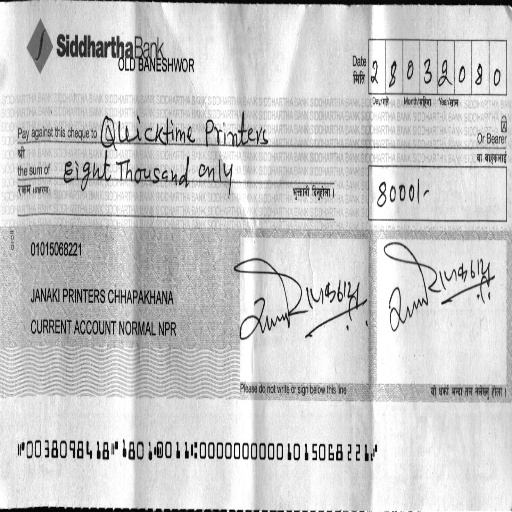 SiddharthaBank
OLD BANESHWOR
Date 28032080
मिति
Day/गते Month/महिना Year/साल
Pay against this cheque to Quicktime Printers
श्री Or Bearer
वा वाहकलाई
the sum of Eight Thousand only
रकम (अक्षरमा) भुक्तानी दिनुहोला। 8000/-
01015068221
JANAKI PRINTERS CHHAPAKHANA
CURRENT ACCOUNT NORMAL NPR
Please do not write or sign below this line
⑈00380984⑈18⑈ 1801⑉0011⑆00000000001015068221⑈